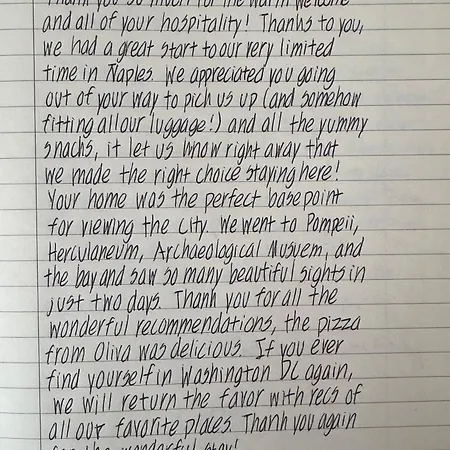 Thank you so much for the warm welcome
and all of your hospitality! Thanks to you,
we had a great start to our very limited
time in Naples. We appreciated you going
out of your way to pick us up (and somehow
fitting all our luggage!) and all the yummy
snacks, it let us know right away that
we made the right choice staying here!
Your home was the perfect base point
for viewing the city. We went to Pompeii,
Herculaneum, Archaeological Musuem, and
the bay and saw so many beautiful sights in
just two days. Thank you for all the
wonderful recommendations, the pizza
from Oliva was delicious. If you ever
find yourself in Washington DC again,
we will return the favor with recs of
all our favorite places. Thank you again
for the wonderful stay!